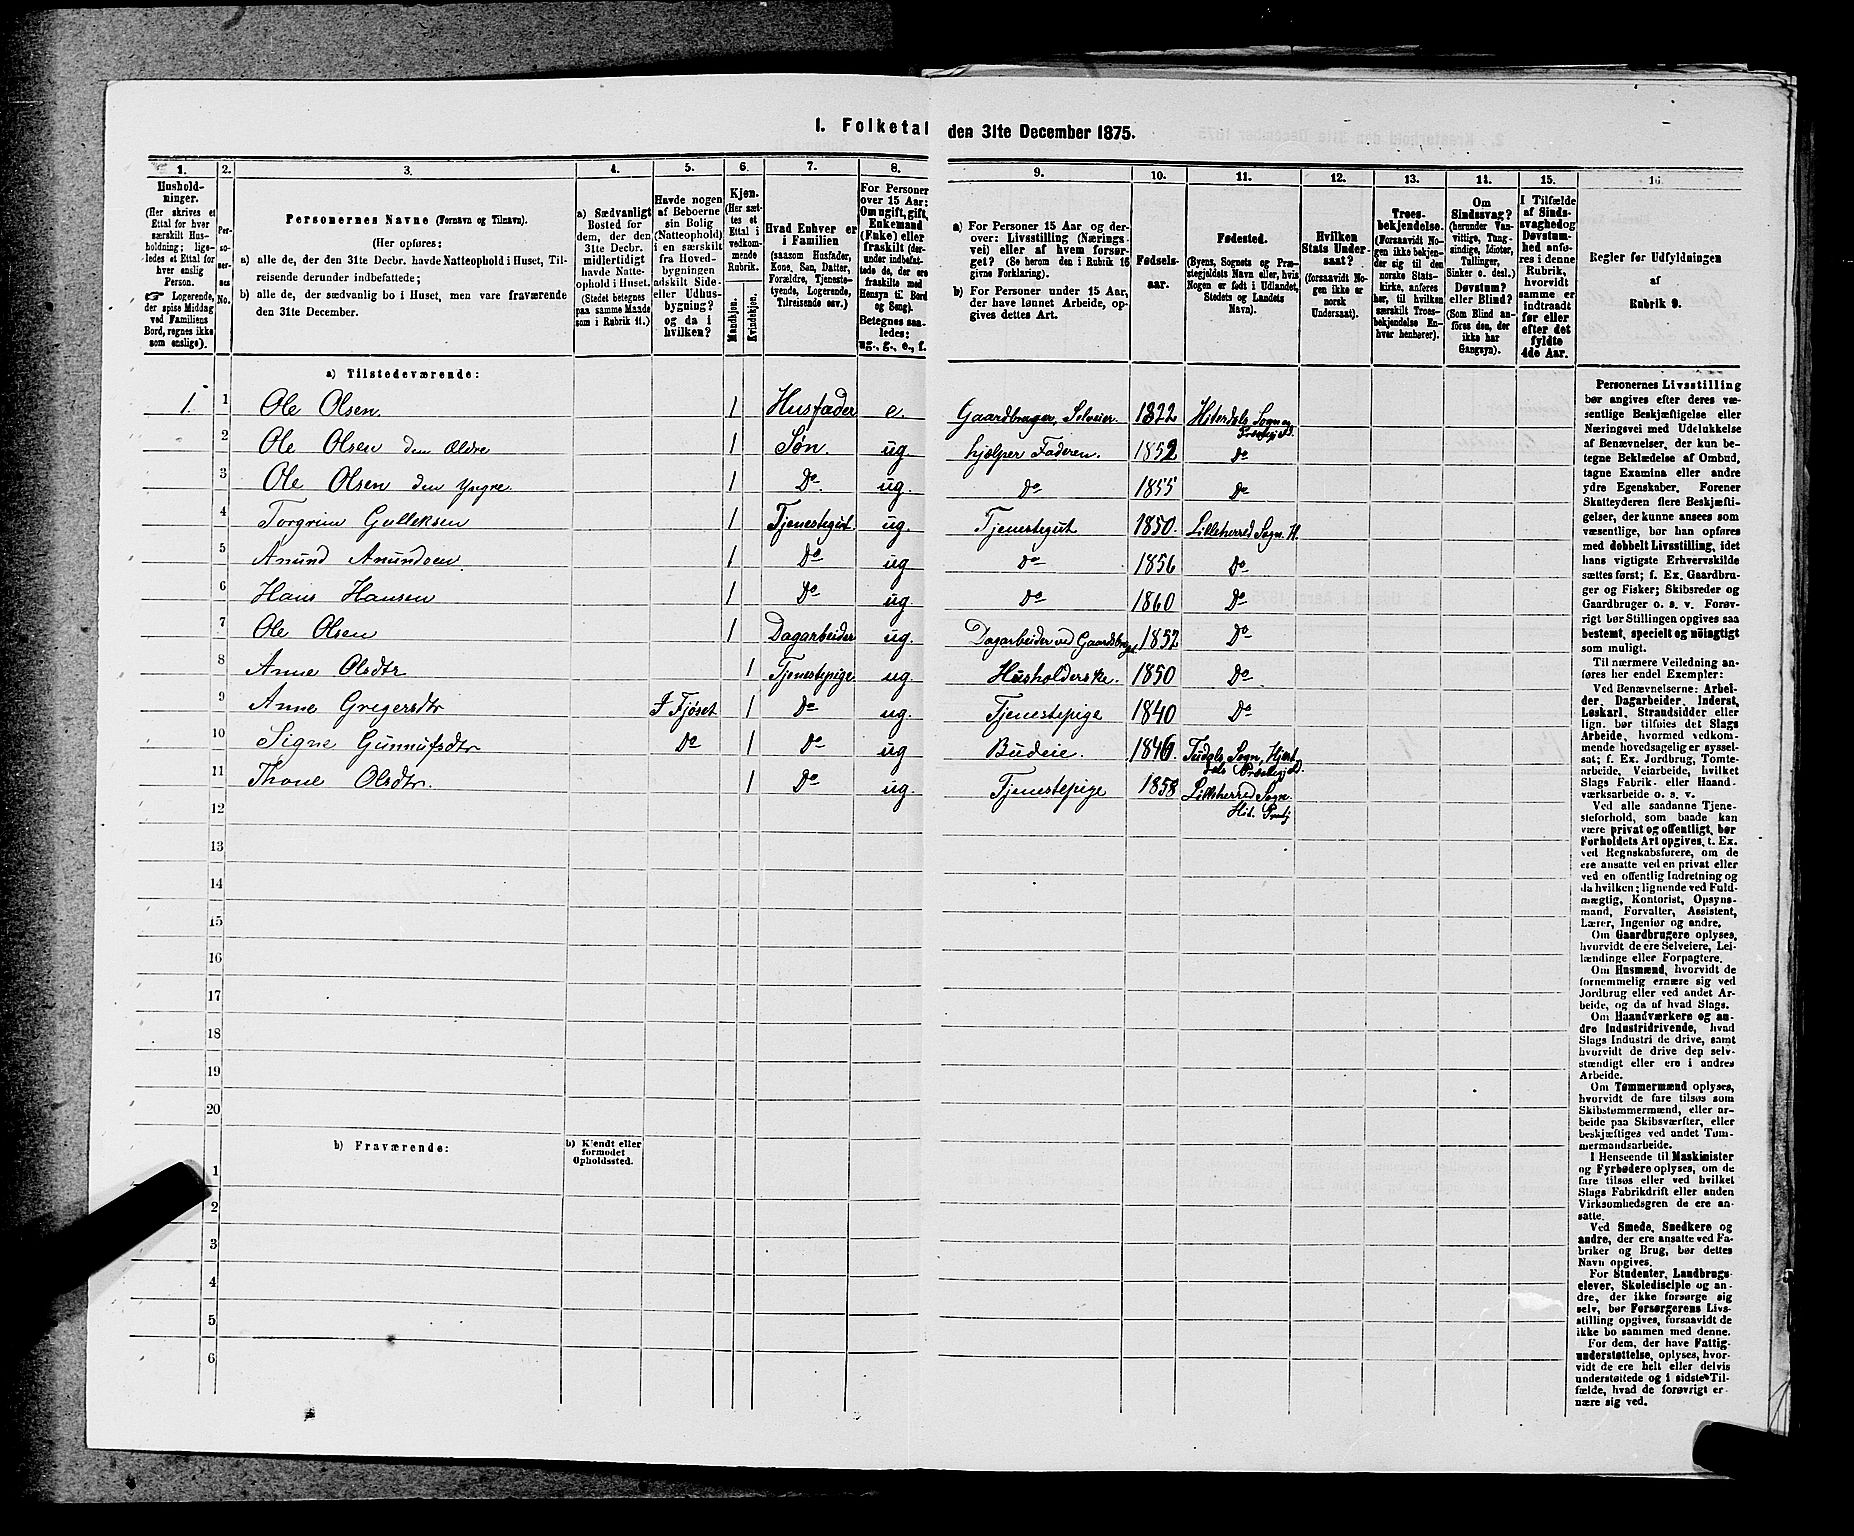 I. Folketal
den 31te December 1875.
1.
2.
3.
4.
5.
6.
7.
8.
9.
10.
11.
12.
13.
14.
15.
16.
Hushold-
ninger.
(Her skrives et
Ettal for hver
særskilt Hus-
holdning; lige-
ledes et Ettal for
hver enslig
Person.
☞ Logerende,
der spise Middag
ved Familiens
Bord, regnes ikke
som enslige).
Per-
so-
ner-
nes
No.
Personernes Navne (Fornavn og Tilnavn).
(Her opføres:
a) alle de, der den 31te Decbr. havde Natteophold i Huset, Til-
reisende derunder indbefattede;
b) alle de, der sædvanlig bo i Huset, men vare fraværende
den 31te December.
a) Sædvanligt
Bosted for
dem, der den
31te Decbr.
midlertidigt
havde Natte-
ophold i Huset.
(Stedet betegnes
paa samme Maade
som i Rubrik 11.)
Havde nogen
af Beboerne
sin Bolig
(Natteophold)
i en særskilt
fra Hoved-
bygningen
adskilt Side-
eller Udhus-
bygning?
og da i
hvilken?
Kjøn.
(Her sæt-
tes et
Ettal i
vedkom-
mende
Rubrik.
Mandkjøn.
Kvindekjøn.
Hvad Enhver er
i Familien
(saasom Husfader,
Kone, Søn, Datter,
Forældre, Tjeneste-
tyende, Logerende,
Tilreisende osv.)
For Personer
over 15 Aar:
Om ugift, gift,
Enkemand
(Enke) eller
fraskilt (der-
under indbefat-
tede de, der ere
fraskilte med
Hensyn til Bord
og Seng).
Betegnes saa-
ledes:
ug., g., e., f.
a) For Personer 15 Aar og der-
over: Livsstilling (Nærings-
vei) eller af hvem forsør-
get? (Se herom den i Rubrik 16
givne Forklaring).
b) For Personer under 15 Aar,
der have lønnet Arbeide, op-
gives dettes Art.
Fødsels-
aar.
Fødested.
(Byens, Sognets og Præ-
stegjeldets Navn eller, hvis
Nogen er født i Udlandet,
Stedets og Landets
Navn).
Hvilken
Stats Under-
saat?
(forsaavidt No-
gen ikke er
norsk
Undersaat).
Troes-
bekjendelse.
(Forsaavidt No-
gen ikke bekjen-
der sig til den
norske Stats-
kirke, anføres
her, til hvilken
særskilt Troes-
bekjendelse En-
hver henhører).
Om
Sindssvag?
(herunder Van-
vittige, Tung-
sindige, Idioter,
Tullinger,
Sinker o. desl.)
Døvstum?
eller Blind?
(Som Blind an-
føres den, der
ikke har
Gangsyn).
I Tilfælde
af Sinds-
svaghed og
Døvstum-
hed anfø-
res i denne
Rubrik,
hvorvidt
samme er
indtraadt
før eller
efter det
fyldte
4de Aar.
Regler for Udfyldningen
af
Rubrik 9.
a) Tilstedeværende:
1. 1 Ole Olsen 1 Husfader e. Gaardbruger, Selveier 1822 Hiterdals Sogn og
Præstegjeld.
2 Ole Olsen den Ældre 1 Søn. ug hjælper Faderen. 1852 Do
3 Ole Olsen den Yngre. 1 Do. ug. Do 1855 Do
4 Torgrim Gulleksen 1 Tjenestegut. ug. Tjenestegut 1850. Lilleherred Sogn. H.
5 Anund Anundsen. 1 Do ug Do 1856 Do
6 Hans Hansen 1 Do ug. Do 1860 Do
7 Ole Olsen 1 Dagarbeider ug. Dagarbeider ved Gaardsbruget 1852 Do
8 Anne Olsdtr 1 Tjenestepige ug. Husholderske. 1850 Do
9 Anne Gregersdtr I Fjøset 1 Do ug. Tjenestepige 1840 Do
10 Signe Gunnufsdtr Do 1 Do ug Budeie. 1846. Tudals Sogn, Hjert-
dals Præstegjeld.
11 Thone Olsdtr. 1 Do ug. Tjenestepige 1858 Lilleherred Sogn.
Hit. Prestgj
12
13
14
15
16
17
18
19
20
b) Fraværende:
b) Kjendt eller
formodet
Opholdssted.
1
2
3
4
5
6
Personernes Livsstilling
bør angives efter deres væ-
sentlige Beskjæftigelse eller
Næringsvei med Udelukkelse
af Benævnelser, der kun be-
tegne Beklædelse af Ombud,
tagne Examina eller andre
ydre Egenskaber. Forener
Skatteyderen flere Beskjæfti-
gelser, der kunne ansees som
væsentlige, bør han opføres
med dobbelt Livsstilling, idet
hans vigtigste Erhvervskilde
sættes først; f. Ex. Gaardbru-
ger og Fisker; Skibsreder og
Gaardbruger o. s. v. Forøv-
rigt bør Stillingen opgives saa
bestemt, specielt og nöiagtigt
som muligt.
Til nærmere Veiledning an-
føres her endel Exempler:
Ved Benævnelserne: Arbei-
der, Dagarbeider, Inderst,
Løskarl, Strandsidder eller
lign. bør tilføies det Slags
Arbeide, hvormed vedkom-
mende hovedsagelig er syssel-
sat; f. Ex. Jordbrug, Tomte-
arbeide, Veiarbeide, hvilket
Slags Fabrik- eller Haand-
værksarbeide o. s. v.
Ved alle saadanne Tjene-
steforhold, som baade kan
være privat og offentligt, bør
Forholdets Art opgives, t. Ex.
ved Regnskabsførere, om de
ere ansatte ved en privat eller
ved en offentlig Indretning og
da hvilken; lignende ved Fuld-
mægtig, Kontorist, Opsyns-
mand, Forvalter, Assistent,
Lærer, Ingeniør og andre.
Om Gaardbrugere oplyses,
hvorvidt de ere Selveiere, Lei-
lændinge eller Forpagtere.
Om Husmænd, hvorvidt de
fornemmelig ernære sig ved
Jordbrug eller ved andet Ar-
beide, og da af hvad Slags.
Om Haandværkere og an-
dre Industridrivende, hvad
Slags Industri de drive, samt
hvorvidt de drive dep selv-
stændigt eller ere i andres
Arbeide.
Om Tømmermænd oplyses,
hvorvidt de fare tilsøs som
Skibstømmermænd, eller ar-
beide paa Skibsværfter, eller
beskjæftiges ved andet Tøm-
mermandsarbeide.
I Henseende til Maskinister
og Fyrbødere oplyses, om de
fare tilsøs eller ved hvilket
Slags Fabrikdrift eller anden
Virksomhedsgren de ere an-
satte.
Ved Smede, Snedkere og
andre, der ere ansatte ved Fa-
briker og Brug, bør dettes
Navn opgives.
For Studenter, Landbrugs-
elever, Skoledisciple og an-
dre, der ikke forsørge sig
selv, bør Forsørgerens Livs-
stilling opgives, forsaavidt de
ikke bo sammen med denne.
For dem, der have Fattig-
understøttelse, oplyses, hvor-
vidt de ere helt eller delvis
understøttede og i sidste Til-
fælde, hvad de forøvrigt er-
nære sig ved.